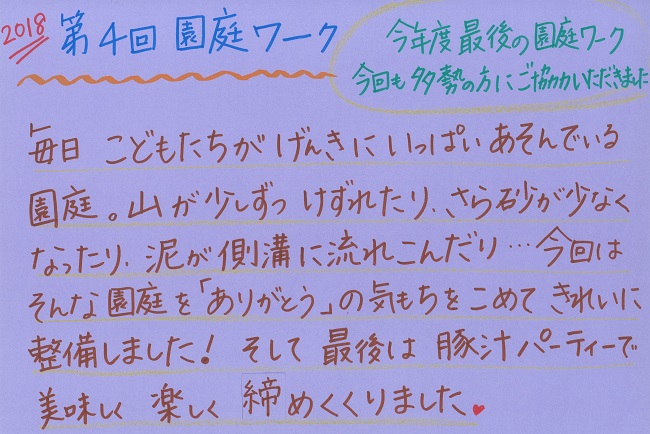 2018
第4回 園庭ワーク
今年度最後の園庭ワーク
今回も多勢の方にご協力いただきました
毎日 こどもたちが げんきに いっぱい あそんでいる
園庭。山が少しずつ けずれたり、さら砂が少なく
なったり、泥が側溝に流れこんだり…今回は
そんな園庭を「ありがとう」の気もちをこめて きれいに
整備しました! そして 最後は 豚汁パーティーで
美味しく 楽しく 締めくくりました♥